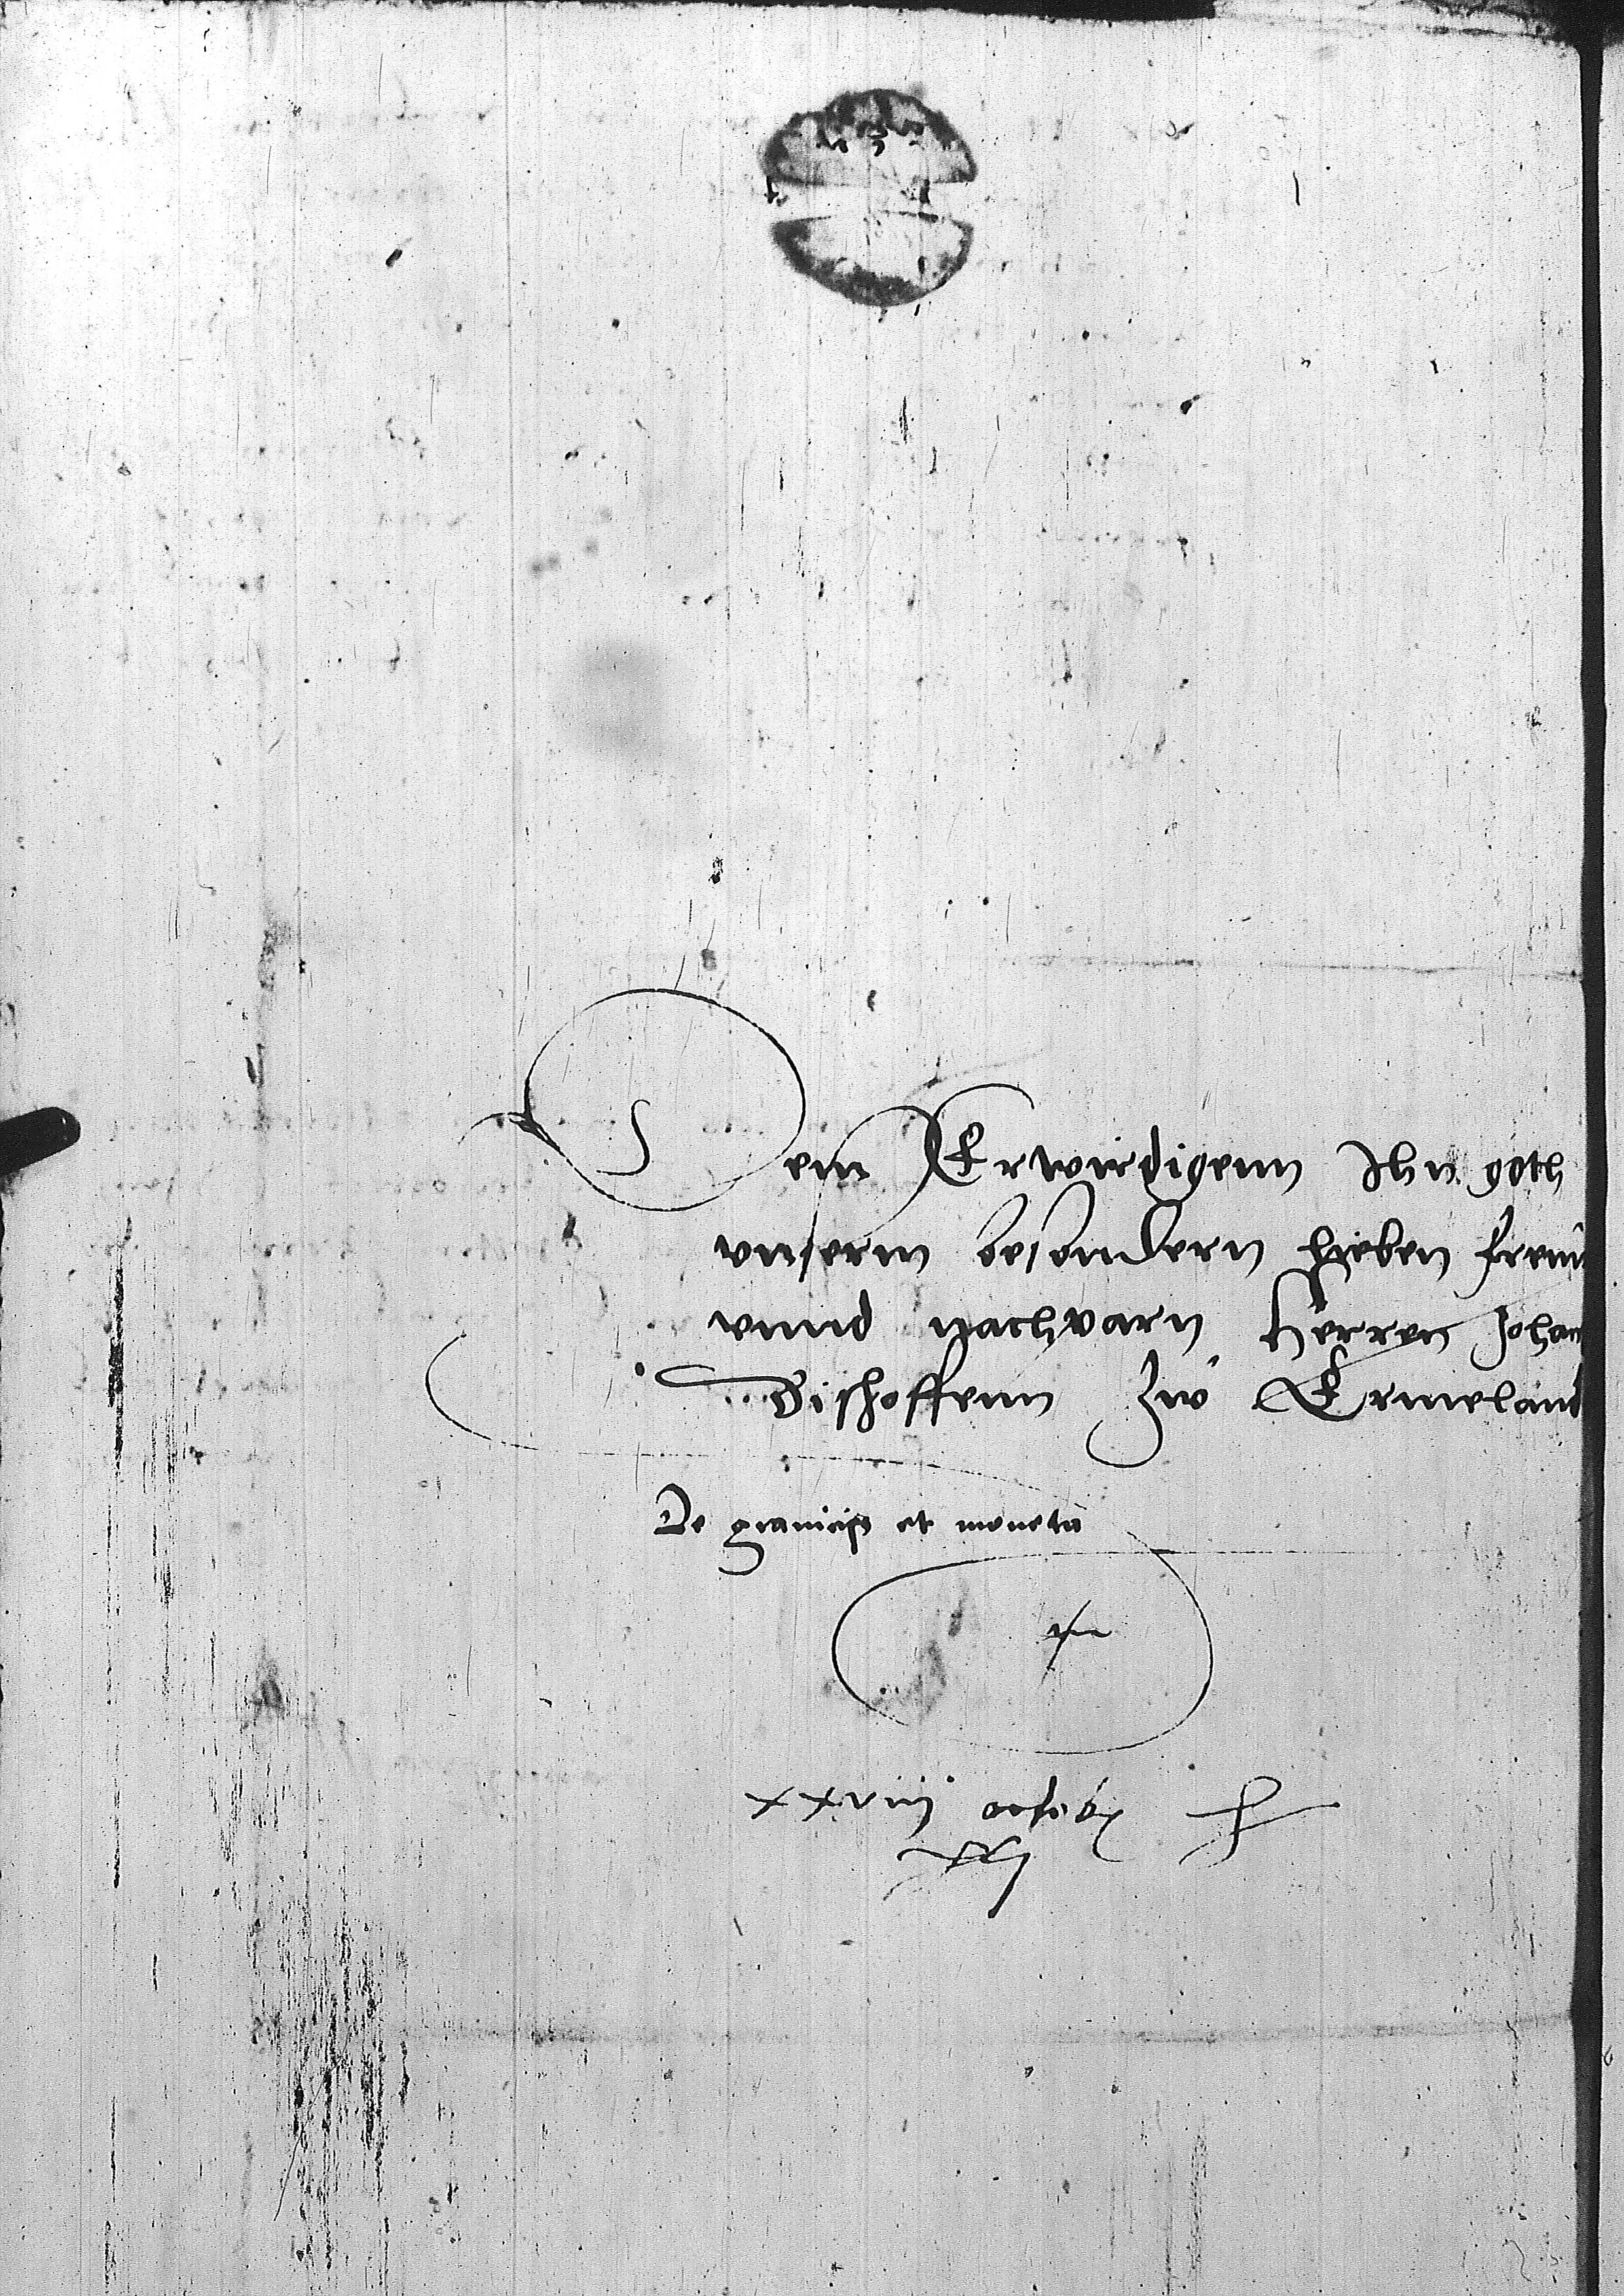 Dem Erwirdigenn Ihn goth
vnserm besondern lieben freun
vnnd nachparn Herren Johan
Bischoffenn Zw Ermeland
De granicijs et moneta
xxviij